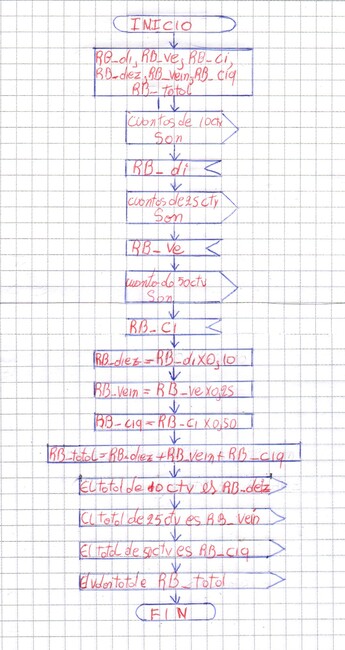 INICIO
RB_di, RB_ve, RB_ci,
RB_diez, RB_vein, RB_ciq
RB_total
cuantos de 10ctv
Son
RB_di
cuantos de 25ctv
Son
RB_ve
cuanto do 50ctv
Son
RB_ci
RB_diez = RB_di X 0,10
RB_vein = RB_ve x 0,25
RB_ciq = RB_ci x 0,50
RB_total = RB_diez + RB_vein + RB_ciq
El total de 10ctv es RB_deiz
El total de 25ctv es RB_vein
El total de 50ctv es RB_ciq
RB_total
FIN